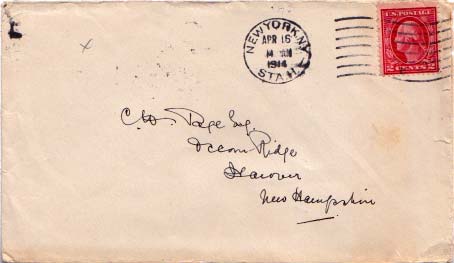 NEW YORK, N.Y.
APR 16
1914
STA. H
U.S. POSTAGE
2 CENTS 2
C. W. Page Esq.
Ridge
Hanover
New Hampshire